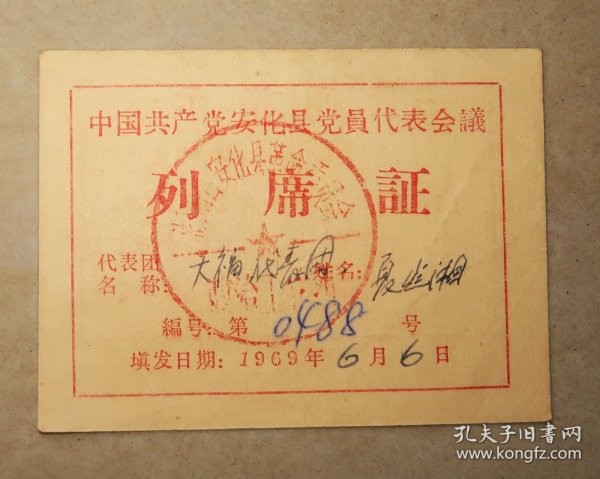 中国共产党安化县党員代表会議
列席証
代表团名称: 大福代表团 姓名: 夏
編号: 第0488号
填发日期: 1969年6月6日
安化县革命委员会
孔夫子旧書网
www.kongfz.com